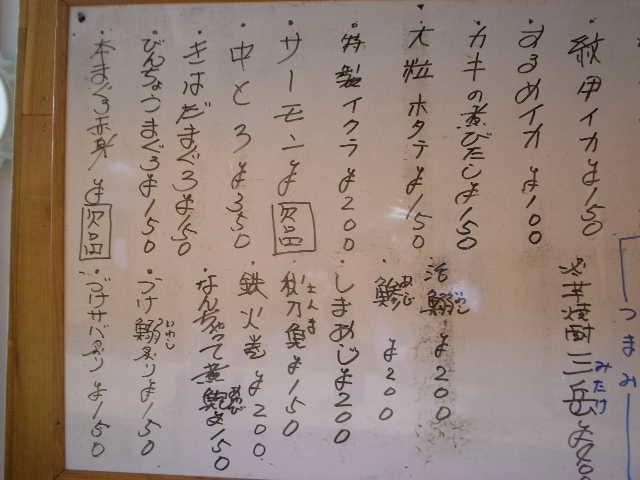 つまみ
・紋甲イカ ¥150
・するめイカ ¥100
・カキの煮びたし ¥150
・大粒ホタテ ¥150
・特製イクラ ¥200
・サーモン ¥ 欠品
・中とろ ¥350
・きはだまぐろ ¥150
・びんちょうまぐろ ¥150
・本まぐろ赤身 ¥ 欠品
芋焼酎 三岳 みたけ
・活鰯 いわし ¥200
・鯵 あじ ¥200
・しまあじ ¥200
・秋刀魚 さんま ¥150
・鉄火巻 ¥200
・なんちゃって煮鮑 あわび ¥150
・づけ鰯 いわし 炙り ¥150
・づけサバ炙り ¥150